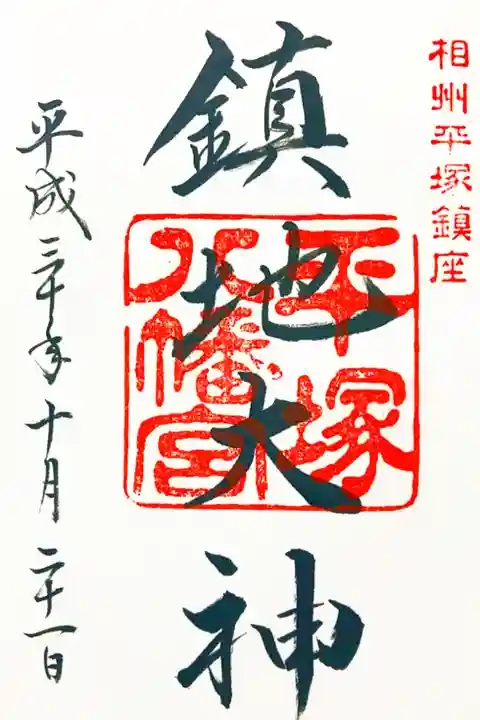 相州平塚鎮座
鎮地大神
平塚
八幡宮
平成三十年十月二十一日